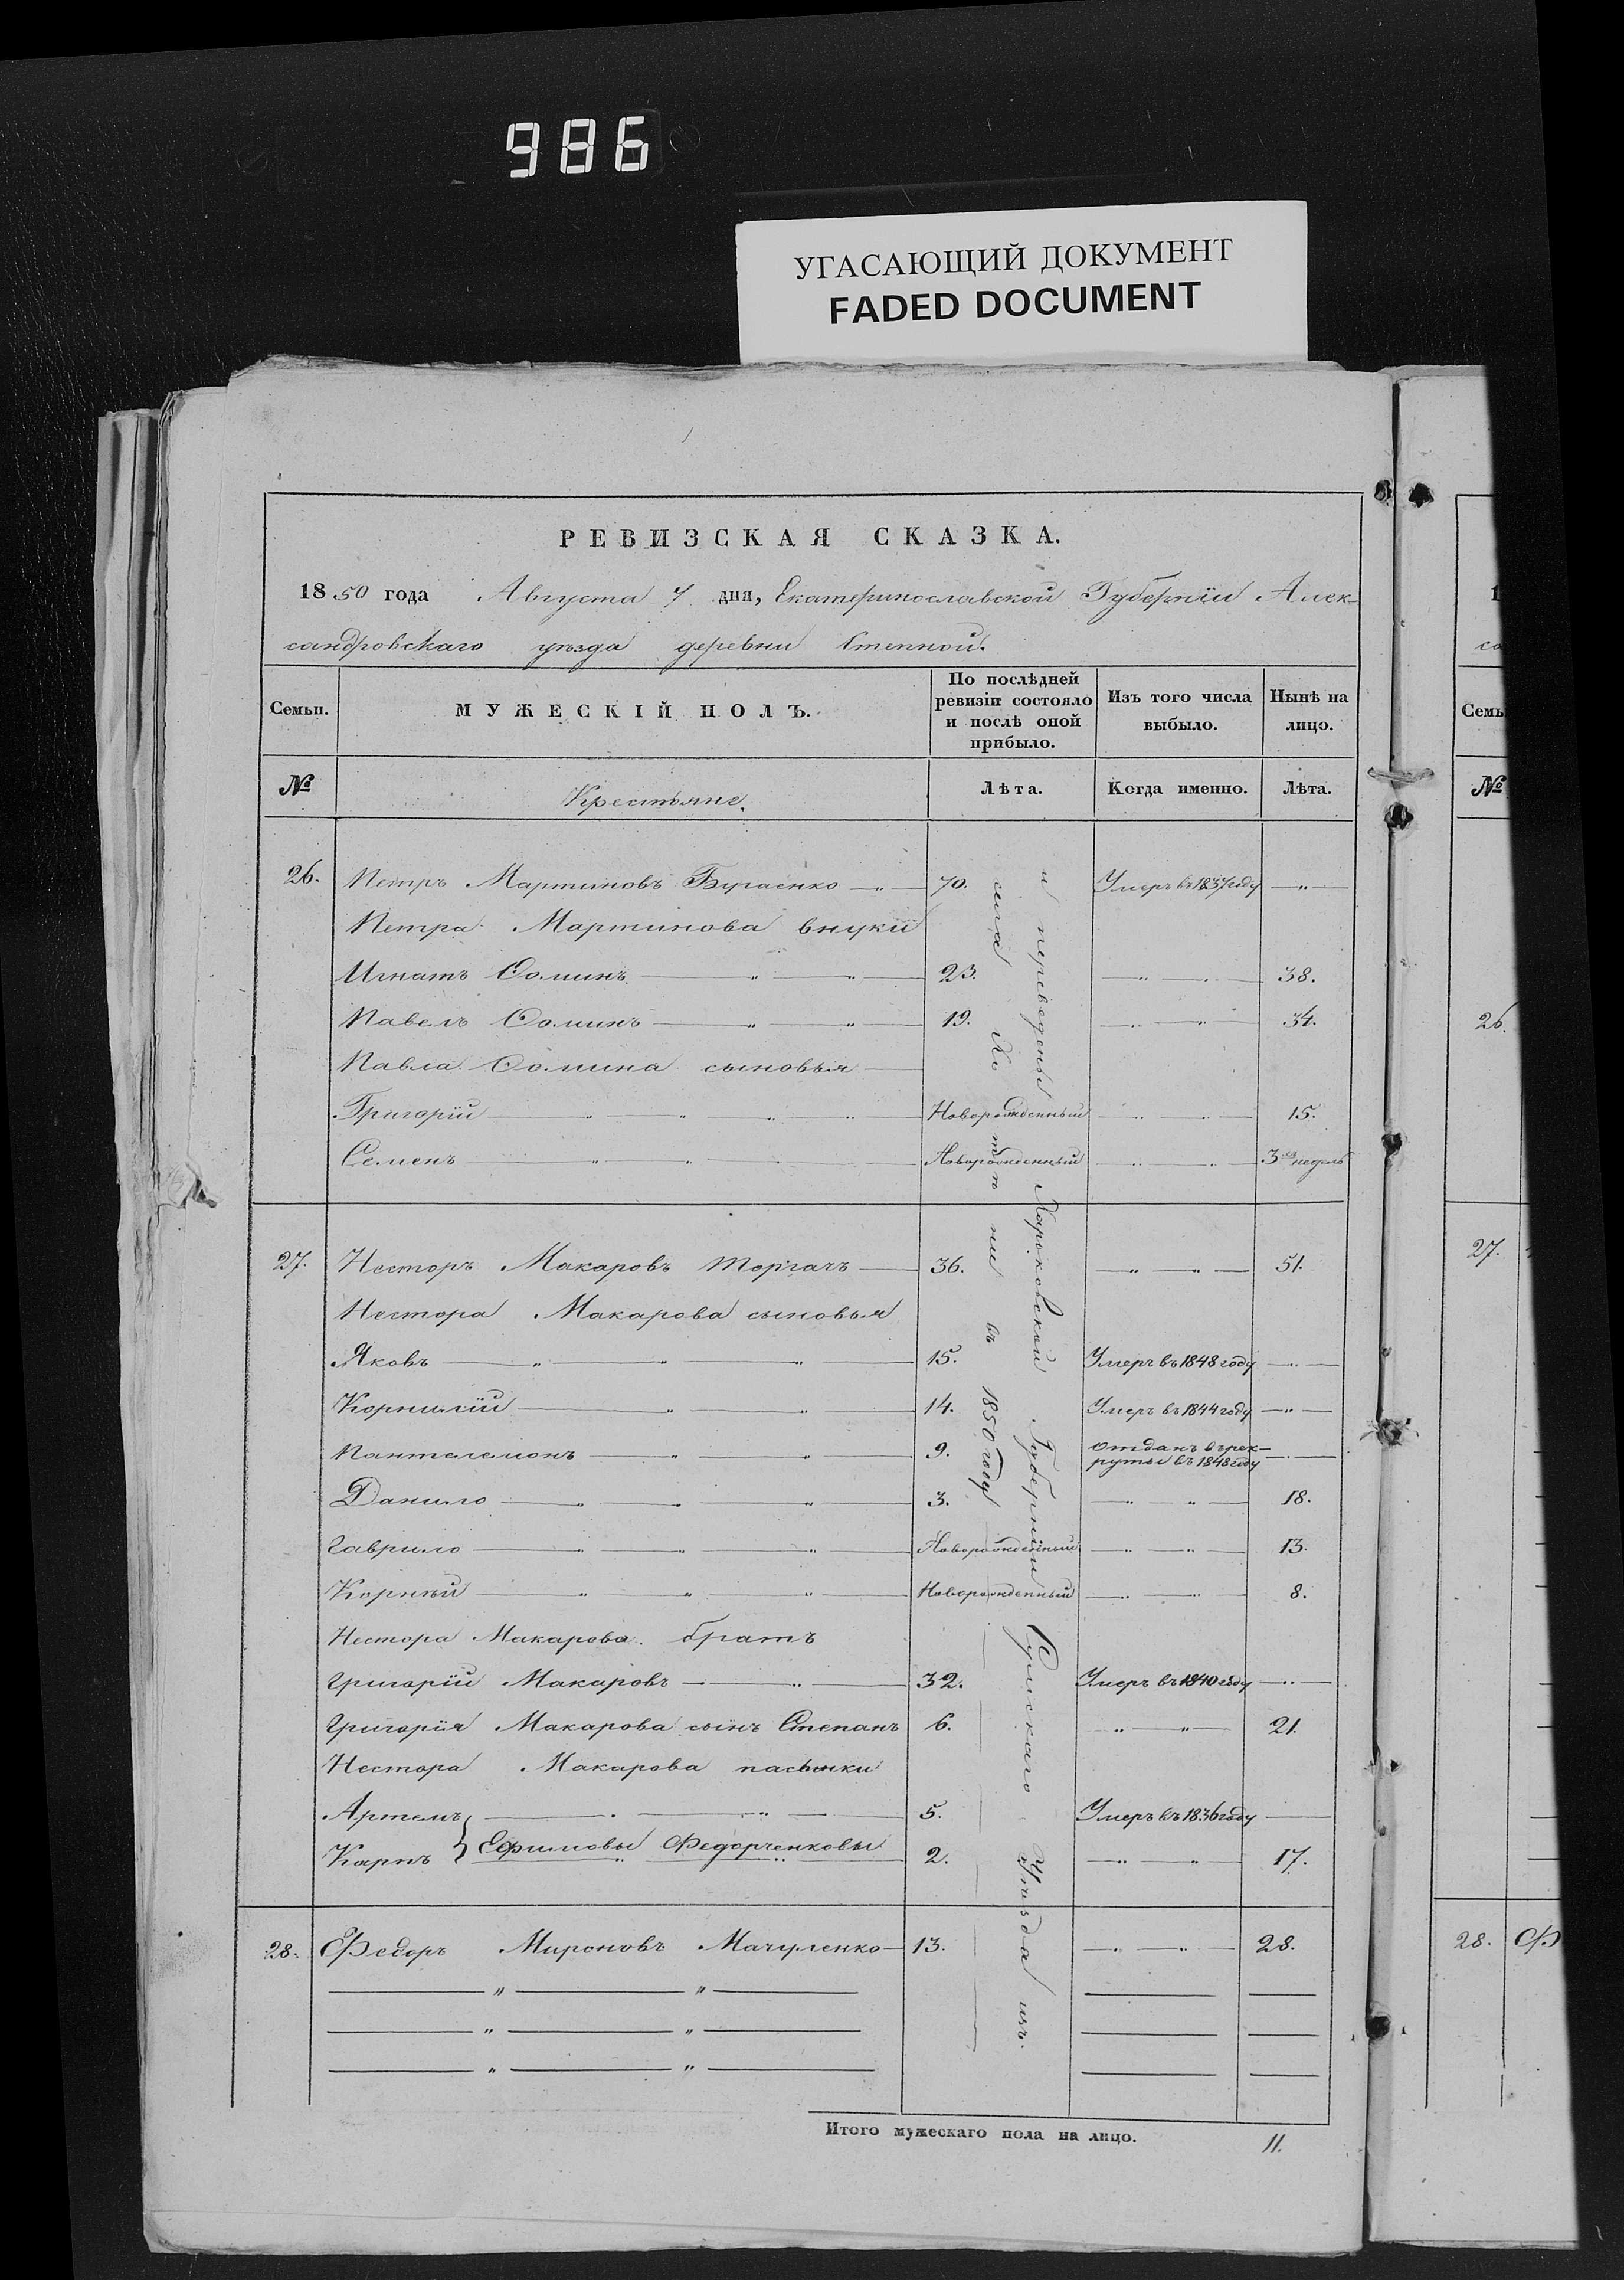 986
УГАСАЮЩИЙ ДОКУМЕНТ
FADED DOCUMENT
РЕВИЗСКАЯ СКАЗКА.
1850 года Августа 7 дня, Екатеринославской Губернїи Алек-
сандровскаго уѣзда деревни Степной.
Семьи.
МУЖЕСКІЙ ПОЛЪ.
По послѣдней ревизіи состояло и послѣ оной прибыло.
Изъ того числа выбыло.
Нынѣ на лицо.
№
Крестьяне.
Лѣта.
Когда именно.
Лѣта.
26. Петръ Мартиновъ Бугаенко 70. Умеръ въ 1837 году
Петра Мартинова внуки
Игнатъ Фоминъ 23. 38.
Павелъ Фоминъ 19. 34.
Павла Фомина сыновья
Григорїй Новорожденный 15.
Семенъ Новорожденный 3 недель
27. Несторъ Макаровъ Торгачъ 36. 51.
Нестора Макарова сыновья
Яковъ 15. Умеръ въ 1848 году
Корнилїй 14. Умеръ въ 1844 году
Пантелемонъ 9. отданъ въ рек-
руты въ 1848 году
Данило 3. 18.
Гаврило Новорожденный 13.
Корнѣй Новорожденный 8.
Нестора Макарова братъ
Григорїй Макаровъ 32. Умеръ въ 1840 году
Григорїя Макарова сынъ Степанъ 6. 21.
Нестора Макарова пасынки
Артемъ 5. Умеръ въ 1836 году
Карпъ } Ефимовы Федорченковы 2. 17.
28. Федоръ Мироновъ Мачуленко 13. 28.
и переведены Харьковской Губернїи Сумскаго Уѣзда изъ
села въ 1850 году
Итого мужескаго пола на лицо. 11.
1
са
Семь
№
26.
27.
28. Ф